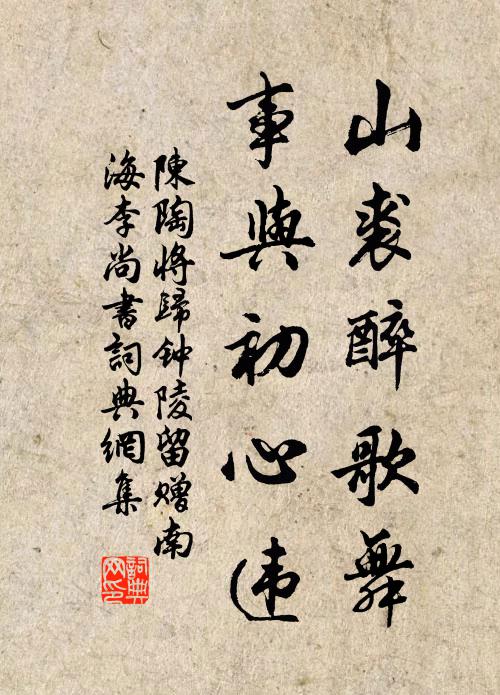 山裘醉歌舞
事與初心違
陳陶將歸钟陵留赠南
海李尚書詞典網集
詞典网印